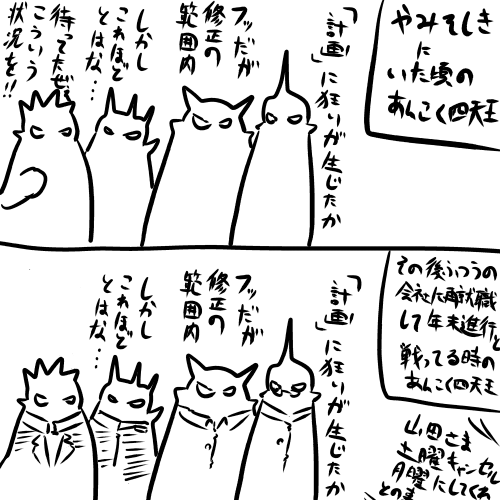 やみそしき
に
いた頃の
あんこく四天王
「計画」に狂いが生じたか
フッだが
修正の
範囲内
しかし
これほど
とはな…
待ってたぜ
こういう
状況を!!
その後ふつうの
会社に再就職
して年末進行と
戦ってる時の
あんこく四天王
「計画」に狂いが生じたか
フッだが
修正の
範囲内
しかし
これほど
とはな…
山田さま
土曜キャンセル
月曜にしてくれ
との